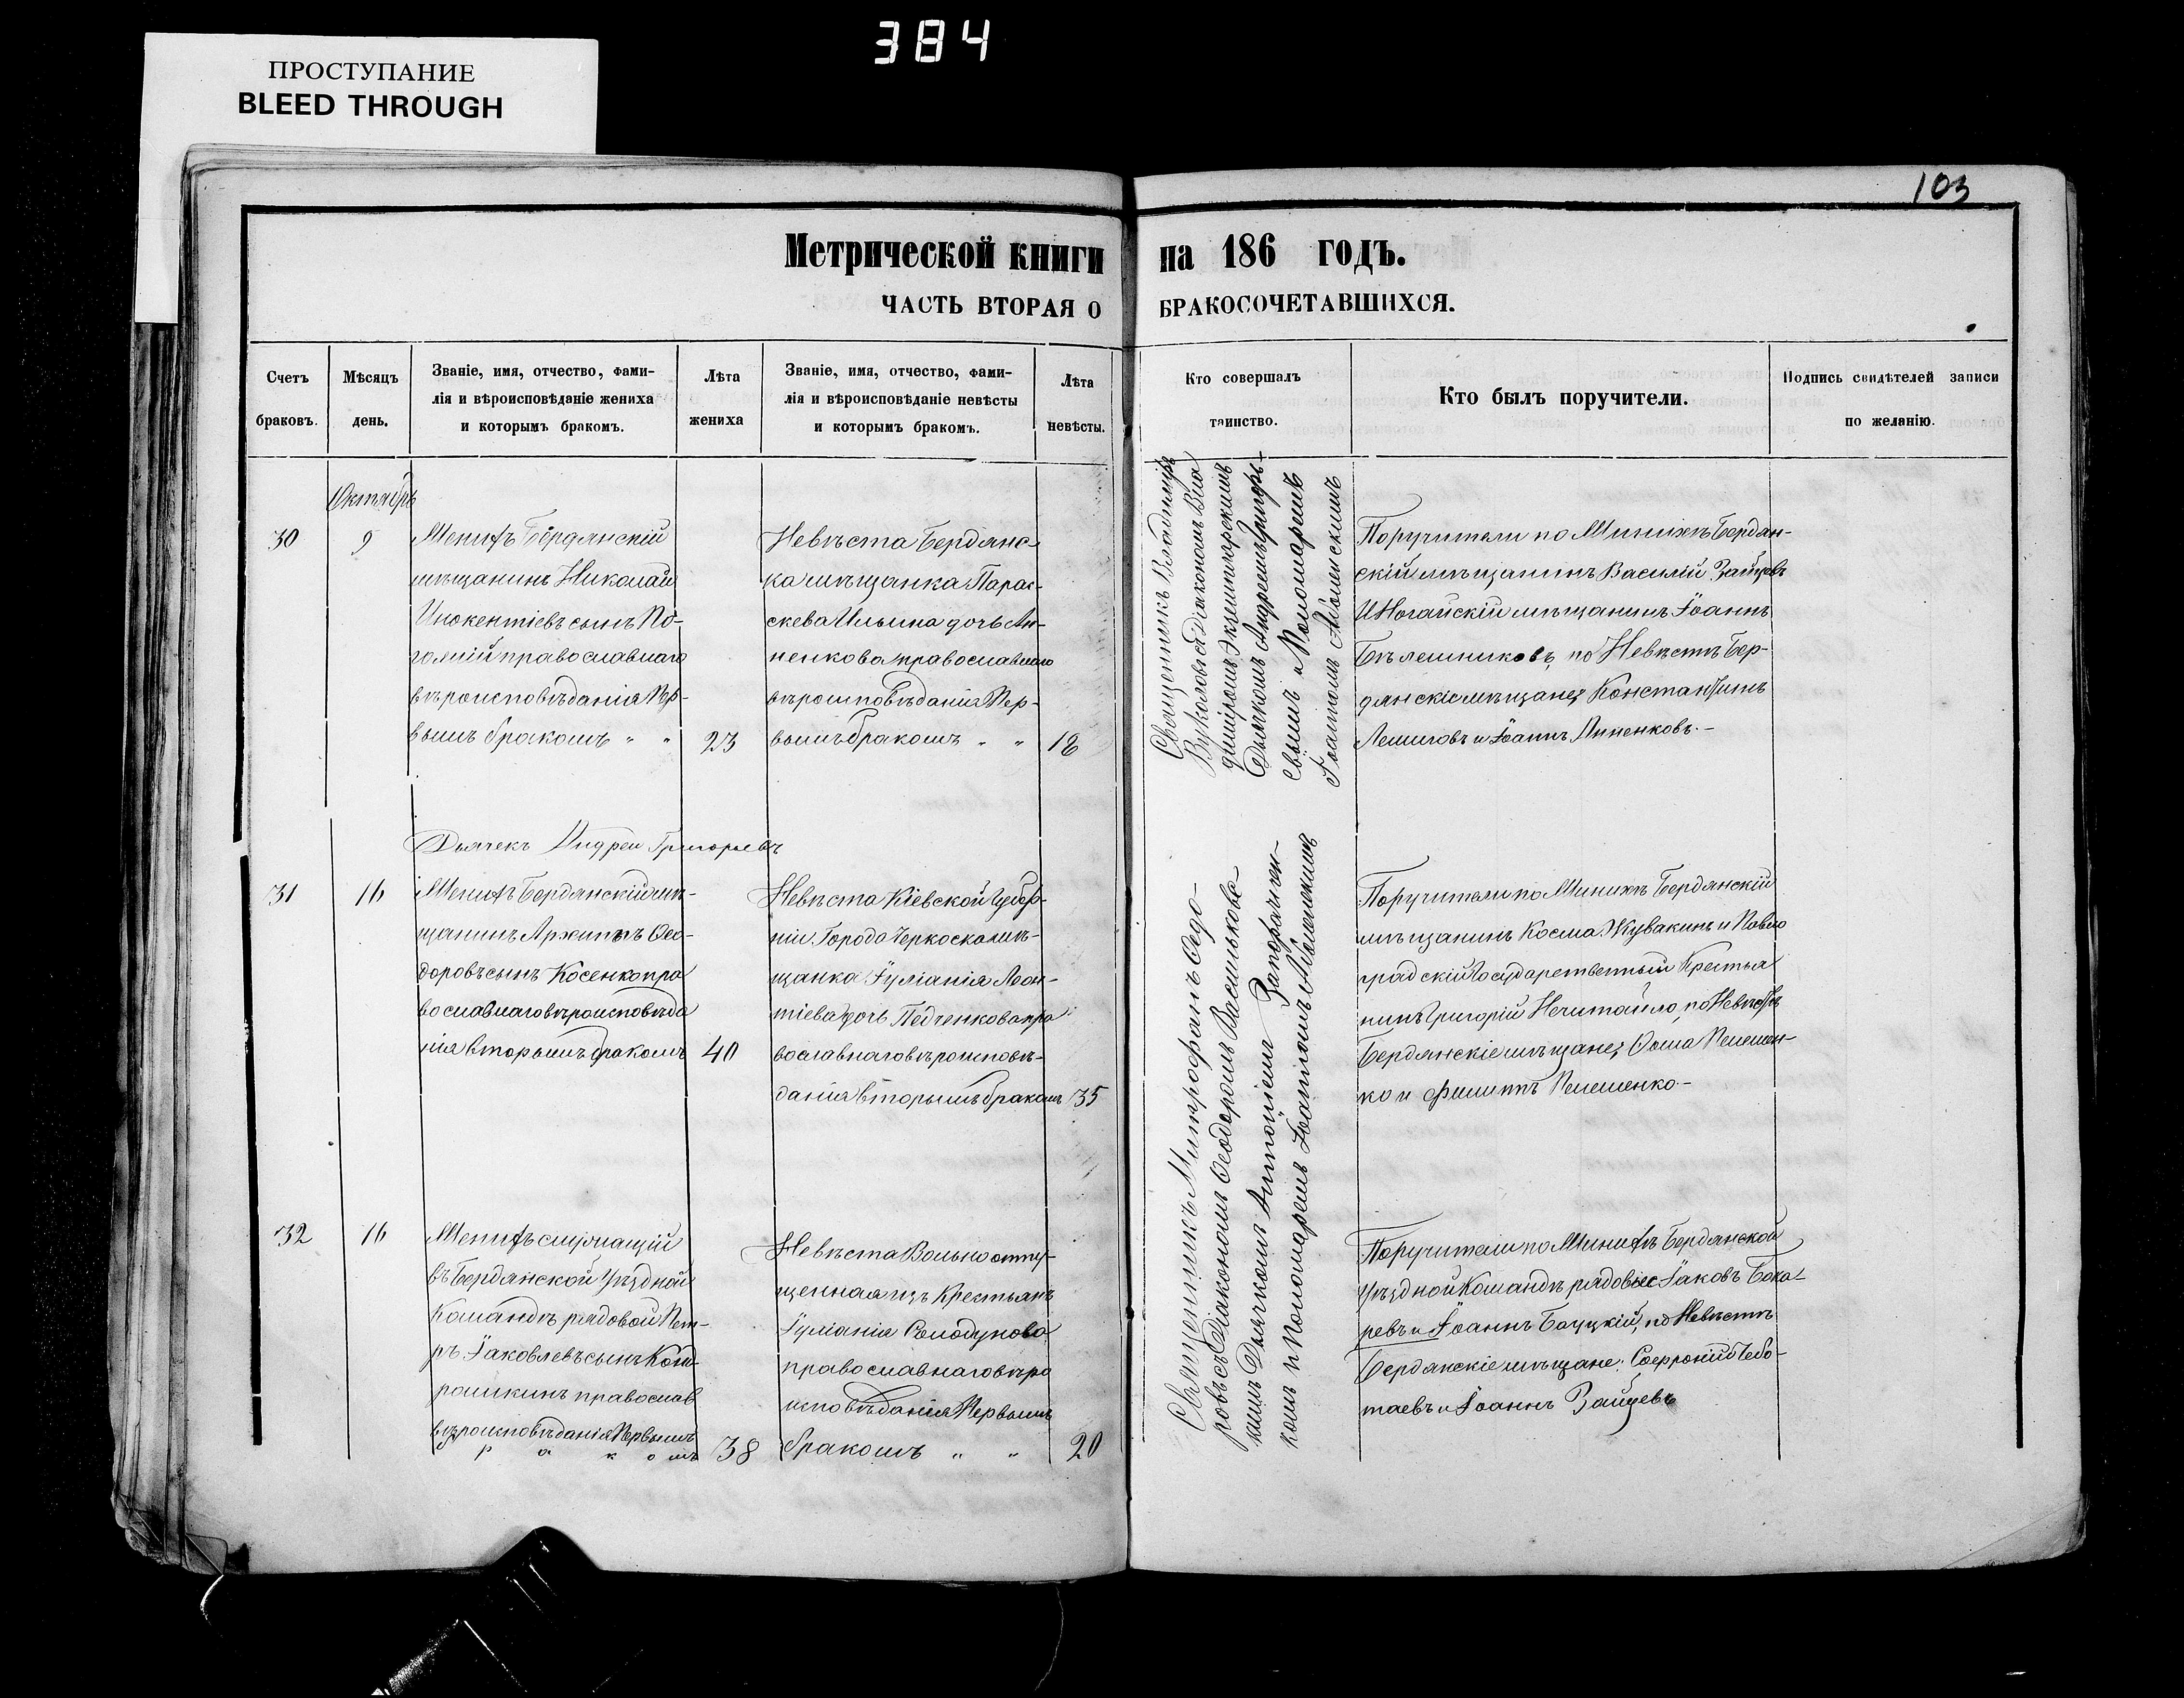 384
ПРОСТУПАНИЕ
BLEED THROUGH
103
Метрической книги на 186 годъ.
ЧАСТЬ ВТОРАЯ О БРАКОСОЧЕТАВШИХСЯ.
Счетъ
браковъ.
Мѣсяцъ
день.
Званіе, имя, отчество, фами-
лія и вѣроисповѣданіе жениха
и которымъ бракомъ.
Лѣта
жениха
Званіе, имя, отчество, фами-
лія и вѣроисповѣданіе невѣсты
и которымъ бракомъ.
Лѣта
невѣсты.
Кто совершалъ
таинство.
Кто былъ поручители.
Подпись свидѣтелей записи
по желанію.
Октябрь
30
9
Женихъ Бердянскій
мѣщанинъ Николай
Инокентіевъ сынъ По-
православнаго
вѣроисповѣданія Пер-
вымъ бракомъ " "
23
Невѣста Бердянс-
ка мѣщанка Парас-
скева Ильина дочь Ан-
ненкова православнаго
вѣроисповѣданія Пер-
вымъ бракомъ " "
18
Священникъ Владиміръ
Вуколовъ съ Діакономъ Вла
диміромъ Экземплярскимъ
Дьячкомъ Андреемъ Григорь-
евымъ и Пономаремъ
Іоанномъ
Поручители по Женихѣ Бердян-
скій мѣщанинъ Василій Зайцевъ
И Ногайскій мѣщанинъ Іоаннъ
Бѣлешниковъ, по Невѣстѣ Бер-
дянскіе мѣщане; Константинъ
и Іоаннъ Анненковъ.-
Дьячекъ Андрей Григорьевъ
31
16
Женихъ Бердянскій мѣ-
щанинъ Архипъ Ѳео-
доровъ сынъ Косенко пра
вославнаго вѣроисповѣда
нія вторымъ бракомъ
40
Невѣста Кіевской Губер-
ніи Города Черкоска мѣ-
щанка Іуліанія Леон-
тіева дочь Педченкова пра
вославнаго вѣроисповѣ-
данія вторымъ бракомъ
35
Священникъ Митрофанъ Ѳедо-
ровъ съ Діакономъ Ѳеодоромъ Васильков-
кимъ Дьячкомъ Антоніемъ
комъ и Пономаремъ Іоанномъ
Поручители по Женихѣ Бердянскій
мѣщанинъ Косма Жувакинъ и Павло
градскій Государственный Крестья
нинъ Григорій Нечитайло, по Невѣстѣ
Бердянскіе мѣщане; Ѳома Пелешен-
ко и Филиппъ Пелешенко-
32
16
Женихъ служащій
въ Бердянской Уѣздной
Командѣ рядовой Пет-
ръ Іаковлевъ сынъ
православ
вѣроисповѣданія Первымъ
б р а к о мъ
38
Невѣста Вольно отпу-
щенная изъ Крестьянъ
Іуліанія Солодунова
православнаго вѣро
исповѣданія Первымъ
бракомъ " "
20
Поручители по Женихѣ Бердянской
уѣздной Командѣ рядовые Іаковъ Бока-
ревъ и Іоаннъ Бауцкій, по Невѣстѣ
Бердянскіе мѣщане: Софроній Чебо-
таевъ и Іоаннъ Зайцевъ